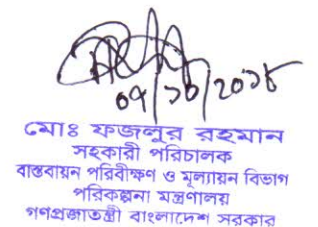 ০৭/১০/২০১৮
মোঃ ফজলুর রহমান
সহকারী পরিচালক
বাস্তবায়ন পরিবীক্ষণ ও মূল্যায়ন বিভাগ
পরিকল্পনা মন্ত্রণালয়
গণপ্রজাতন্ত্রী বাংলাদেশ সরকার